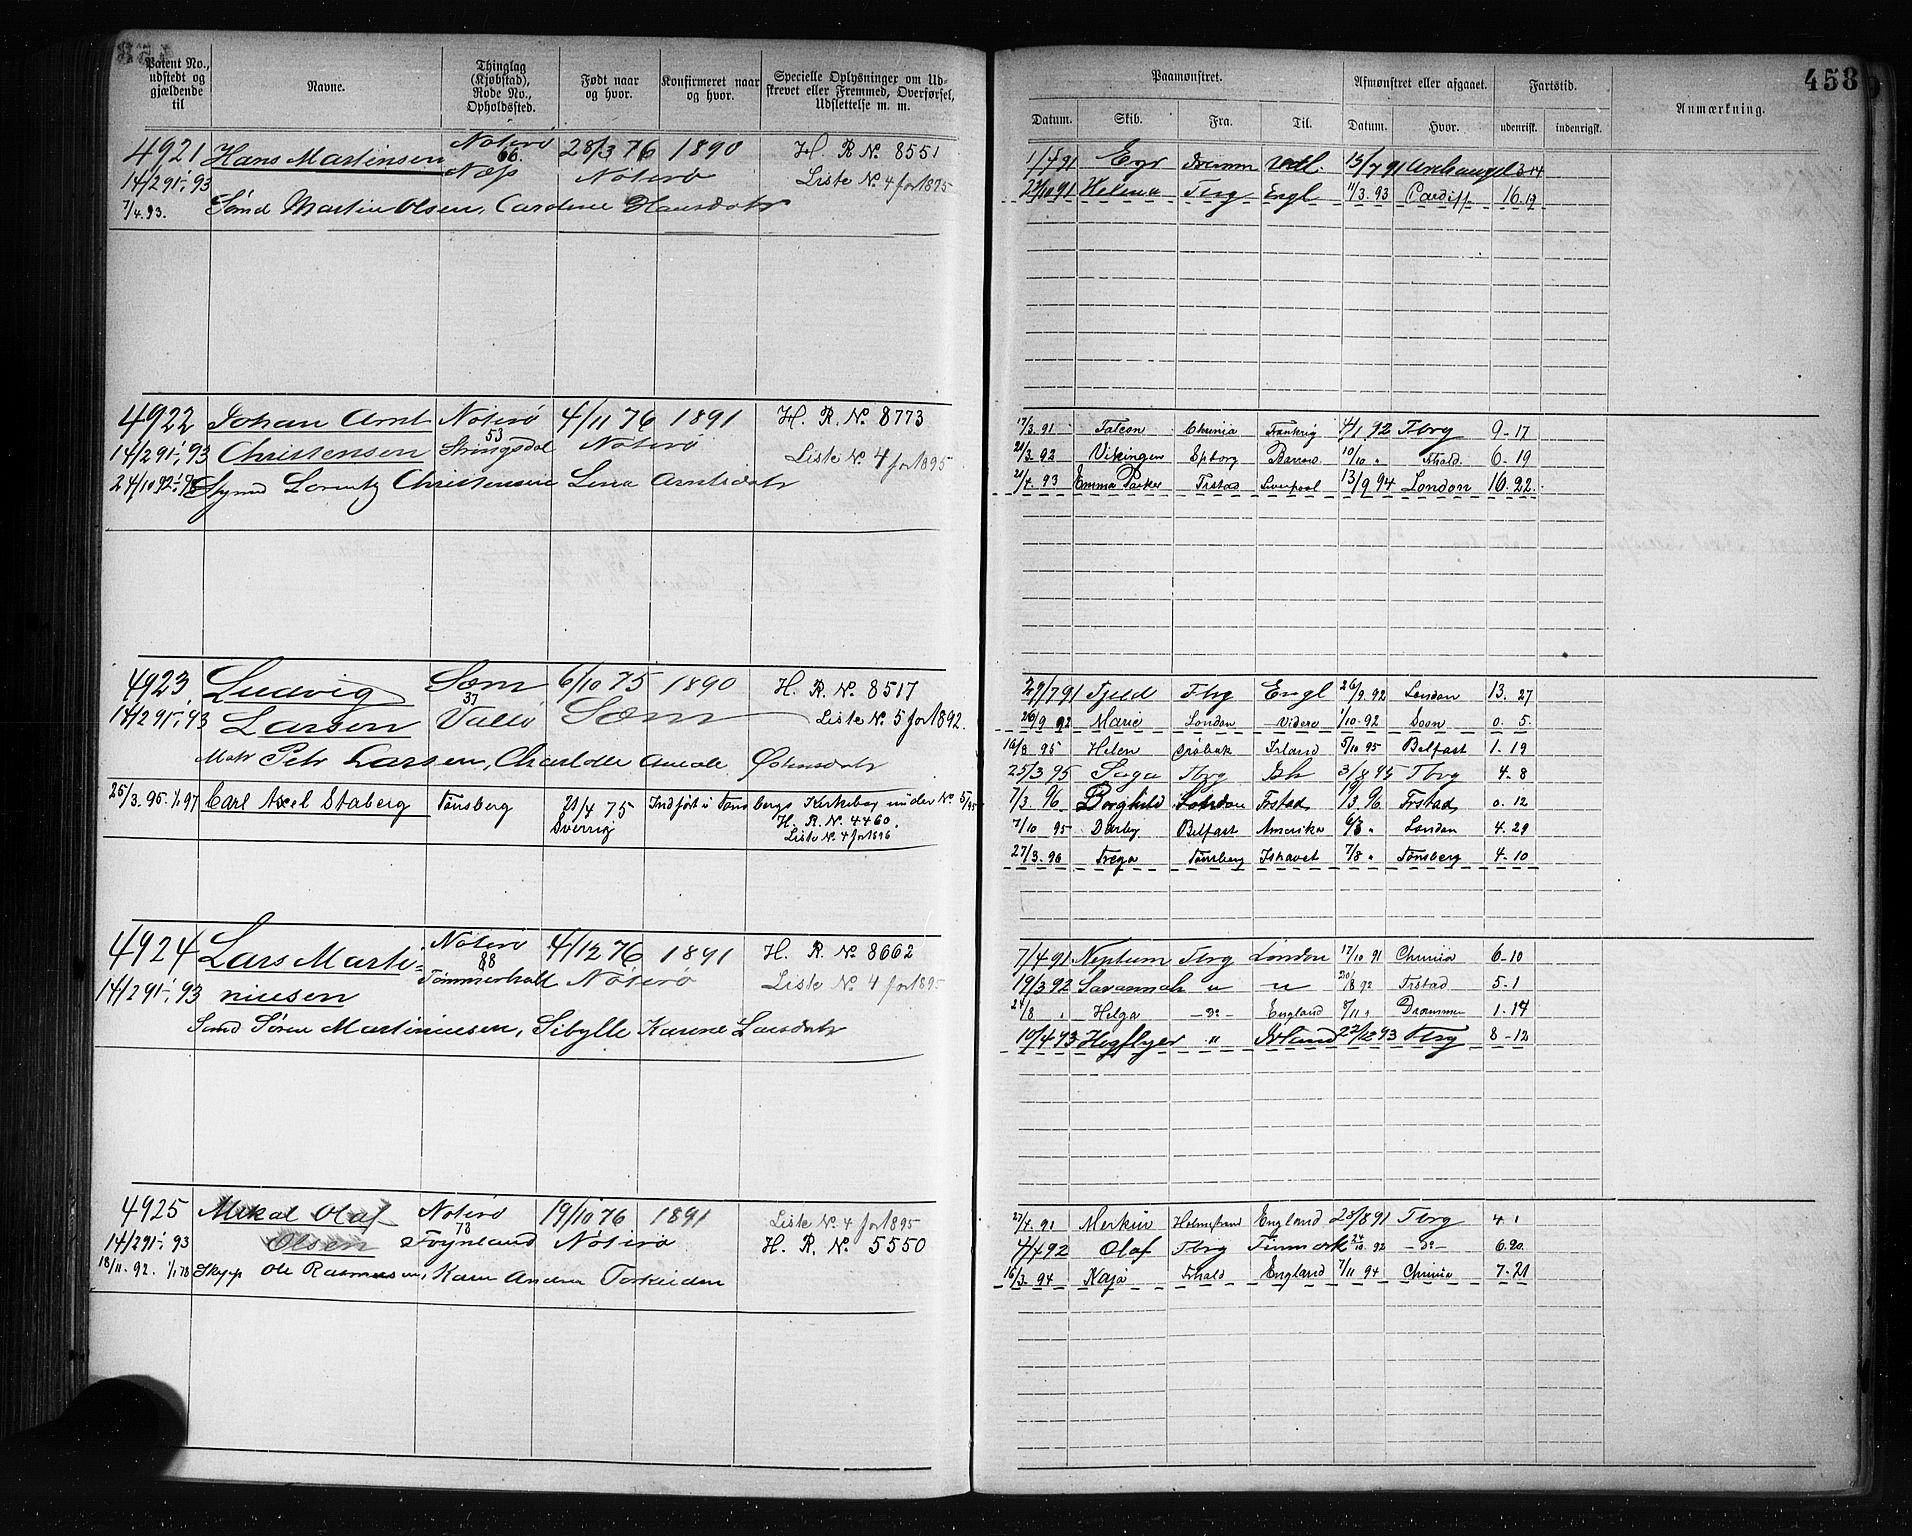 458
Patent No., udstedt og gjældende til
Navne.
Thinglag (Kjøbstad), Rode No., Opholdssted.
Født naar og hvor.
Konfirmeret naar og hvor.
Specielle Oplysninger om Udskrevet eller Fremmed, Overførsel, Udslettelse m. m.
Paamønstret.
Afmønstret eller afgaaet.
Fartstid.
Anmærkning.
Datum. Skib. Fra. Til. Datum. Hvor. udenrigsk. indenrigsk.
4921 Hans Martinsen Nøterø 66. 28/3 76 1890 H. R. No. 8551
14/2 91 - 1/1 93 Næs Nøterø Liste No. 4 for 1895
7/4. 93. Sømd Martin Olsen, Caroline Hansdatr
1/4 91 Egir Drammen 13/7 91 Archangel 3 14
Helena Tbrg Engl 11/3. 93 Cardiff 16. 19
4922 Johan Arnt Nøterø 4/11 76 1891 H. R. No. 8773
14/2 91 - 1/1 93 Christensen 53 Stringsdal Nøterø Liste No. 4 for 1895
24/10 92 Lorentz Christensen Lina Arntsdatr
17/3. 91 Falcon Chrania Frankrig 4/1 92 Tbrg 9-17
21/3. 92 Vikingen Barrow 10/10 " Fhald 6. 19
21/4. 93 Emma Parker Frstad Liverpool 13/9 94 London 16. 22.
4923 Ludvig Sæm 6/10 75 1890 H. R. No. 8517
14/2 91 - 1/1 93 Larsen 37 Vallø Sæm Liste No. 5 for 1892.
Matr Petr Larsen, Charlotte Amalie
25/3. 95. 1/1 97 Carl Axel Staberg Tønsberg 21/4 75 Sverrig Indført i Tønsbergs Kirkebog under No. 5/95
H. R. No. 4460.
Liste No. 4 for 1896
29/7 91 Fjeld Tbrg Engl 26/9. 92 London 13. 27
26/9 92 Marie London Videre 1/10. 92 Soon 0. 5.
16/8 95 Helen Drøbak Irland 5/10 95 Belfast 1. 19
25/3 95 Saga Tbrg 3/8 95 Tbrg 4. 8
7/3. 96 Borghild London Frstad, 19/3. 96 Frstad, 0. 12
7/10 95 Darby Belfast Amerika London 4. 29
27/3. 96 Freya Tønsberg Ishavet 7/8 " Tønsberg 4. 10
4924 Lars Marti- Nøterø 4/12 76 1891 H. R. No. 8662
14/2 91 - 1/1 93 niusen 88 Tømmerholt Nøterø Liste No. 4 for 1895
Sømd Søren Martiniusen, Sibylle Karine Larsdatr
7/4 91 Neptun Tbrg London 17/10 91 Chrania 6-10
19/3 92 Savannah " " 20/8 92 Frstad 5-1
24/8 " Helga - Do - England 8/11 " Drammen 1-14
10/4 93 Highflyer " Irland 22/12 93 Tbrg 8-12
4925 Mikal Olaf Nøterø 19/10 76 1891 Liste No. 4 for 1895
14/2 91 - 1/1 93 Olsen 78 Føynland Nøterø H. R. No. 5550
18/11. 92. Skipp Ole Rasmussen, Karen Andrea
27/4. 91 Merkur Holmestrand England 28/8 91 Tbrg 4 1
4/4 92 Olaf Tbrg Finmark 24/10. 92 - Do - 6. 20.
16/3. 94 Naja Fhald England 7/11 94 Chrania 7-21